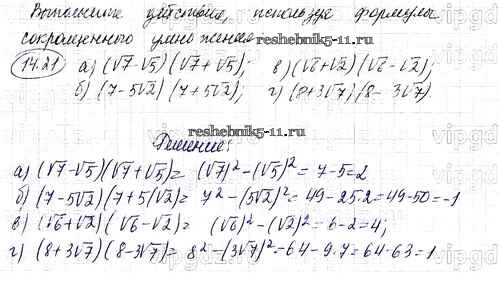 Выполните действия, используя формулы
сокращенного умножения reshebnik5-11.ru
14.21 а) (√7-√5)(√7+√5); в) (√6+√2)(√6-√2);
б) (7-5√2)(7+5√2); г) (8+3√7)(8-3√7).
reshebnik5-11.ru
Решение:
а) (√7-√5)(√7+√5)= (√7)²-(√5)²=7-5=2
б) (7-5√2)(7+5√2)= 7²-(5√2)²=49-25·2=49-50=-1
в) (√6+√2)(√6-√2)= (√6)²-(√2)²=6-2=4;
г) (8+3√7)(8-3√7)= 8²-(3√7)²=64-9·7=64-63=1